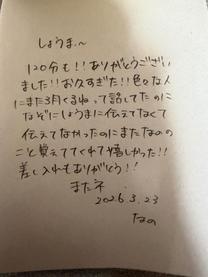 しょうま〜
120分も!!ありがとうござい
ました!!お久すぎた!!色々な人
にまた3月くるねって話してたのに
なぞにしょうまに伝えてなくて
伝えてなかったのにまたなのの
こと覚えててくれて嬉しかった!!
差し入れもありがとう!!
またネ
2026.3.23
なの